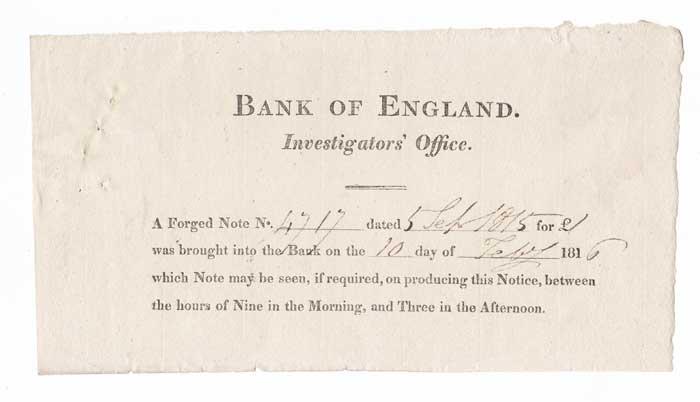 BANK OF ENGLAND.
Investigators' Office.
A Forged Note No. 4717 dated 5 Sep 1815 for £1
was brought into the Bank on the 10 day of Feby 1816
which Note may be seen, if required, on producing this Notice, between
the hours of Nine in the Morning, and Three in the Afternoon.